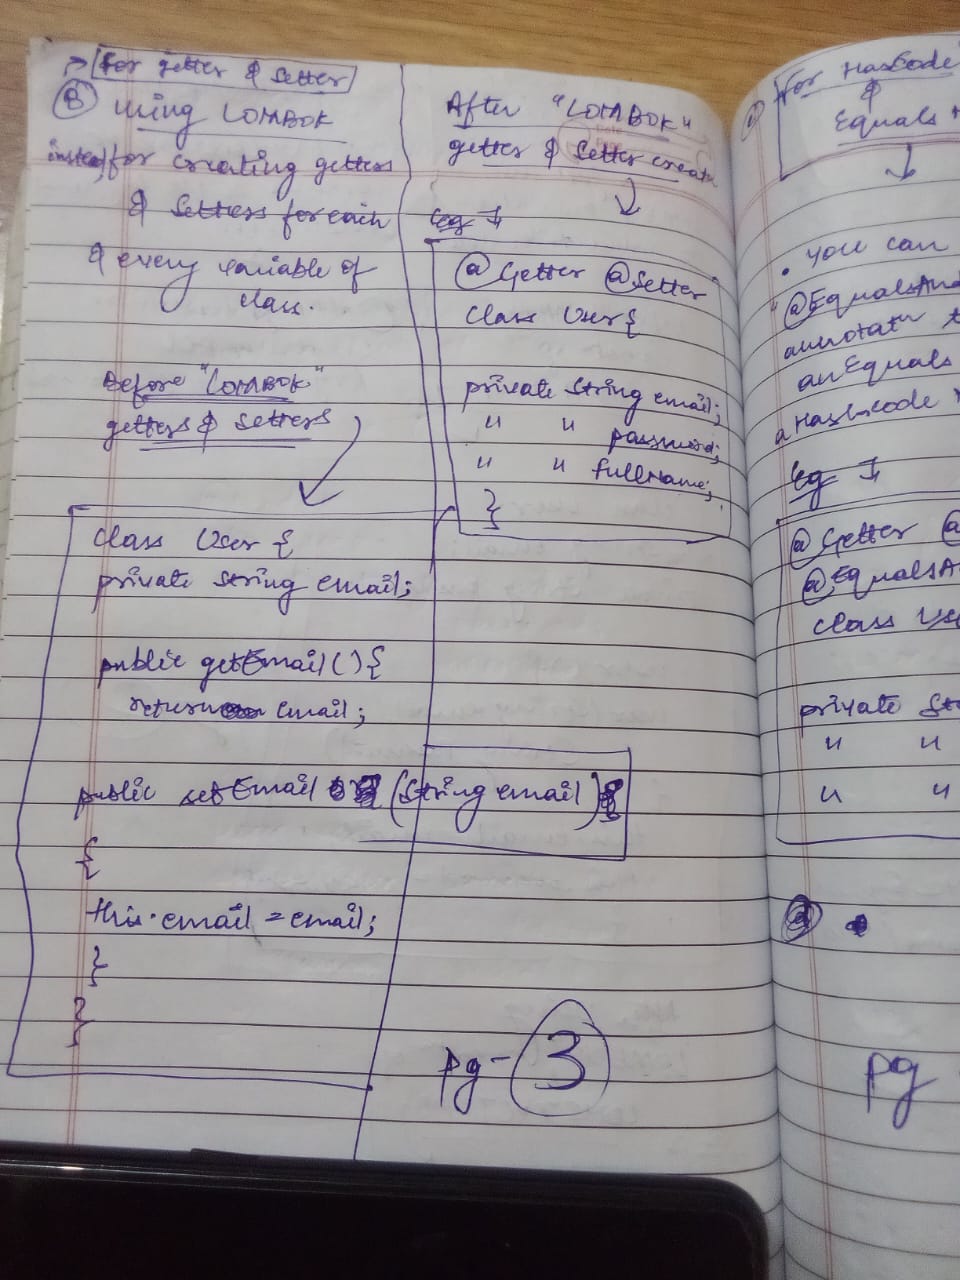 → For getter & Setter
(B) using LOMBOK
instead for creating getters
& Setters for each
& every variable of
class.
Before "LOMBOK"
getters & Setters
class User {
private String email;
public getEmail() {
return email;
public setEmail (String email)
{
this.email = email;
}
}
After "LOMBOK"
getter & Setter create
Eg
@Getter @Setter
class User {
private String email;
" " password;
" " fullName;
}
pg - 3
For HasCode
&
Equals
• you can
"@EqualsAnd
annotatn
an Equals
a HashCode
Eg
@Getter @
@EqualsA
class Us
private St
" "
" "
pg